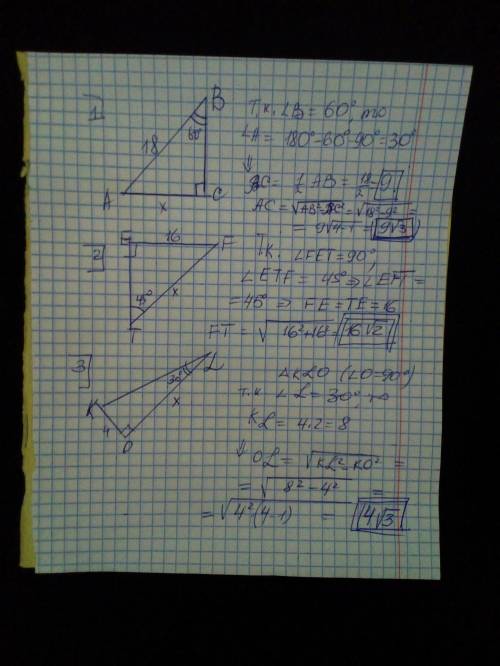 1]
B
60°
18
A
C
x
Т.к. ∠B = 60°, то
∠A = 180°-60°-90°=30°
↓
BC = 1/2 AB = 18/2 = 9
AC = √AB²-BC² = √18²-9² =
= 9√4-1 = 9√3
2]
E
16
F
45°
x
T
Т.к. ∠FET = 90°,
∠ETF = 45° ⇒ ∠EFT =
= 45° ⇒ FE = TE = 16
FT = √16²+16² = 16√2
3]
L
30°
K
x
4
O
ΔKLO (∠O=90°)
т.к ∠L = 30°, то
KL = 4·2 = 8
↓ OL = √KL²-KO² =
= √8²-4² =
= √4²(4-1) = 4√3